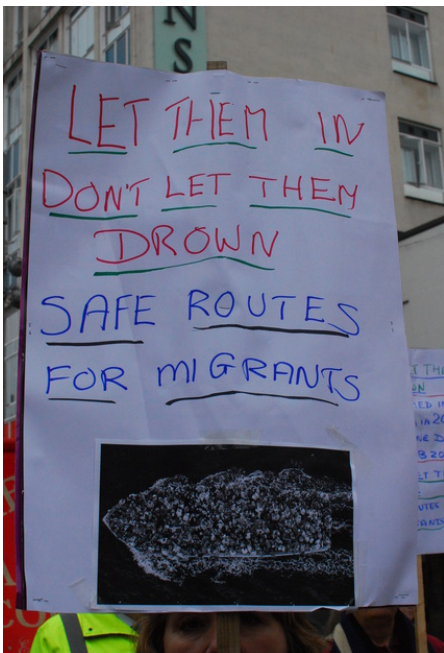 NS
LET THEM IN
DON'T LET THEM
DROWN
SAFE ROUTES
FOR MIGRANTS